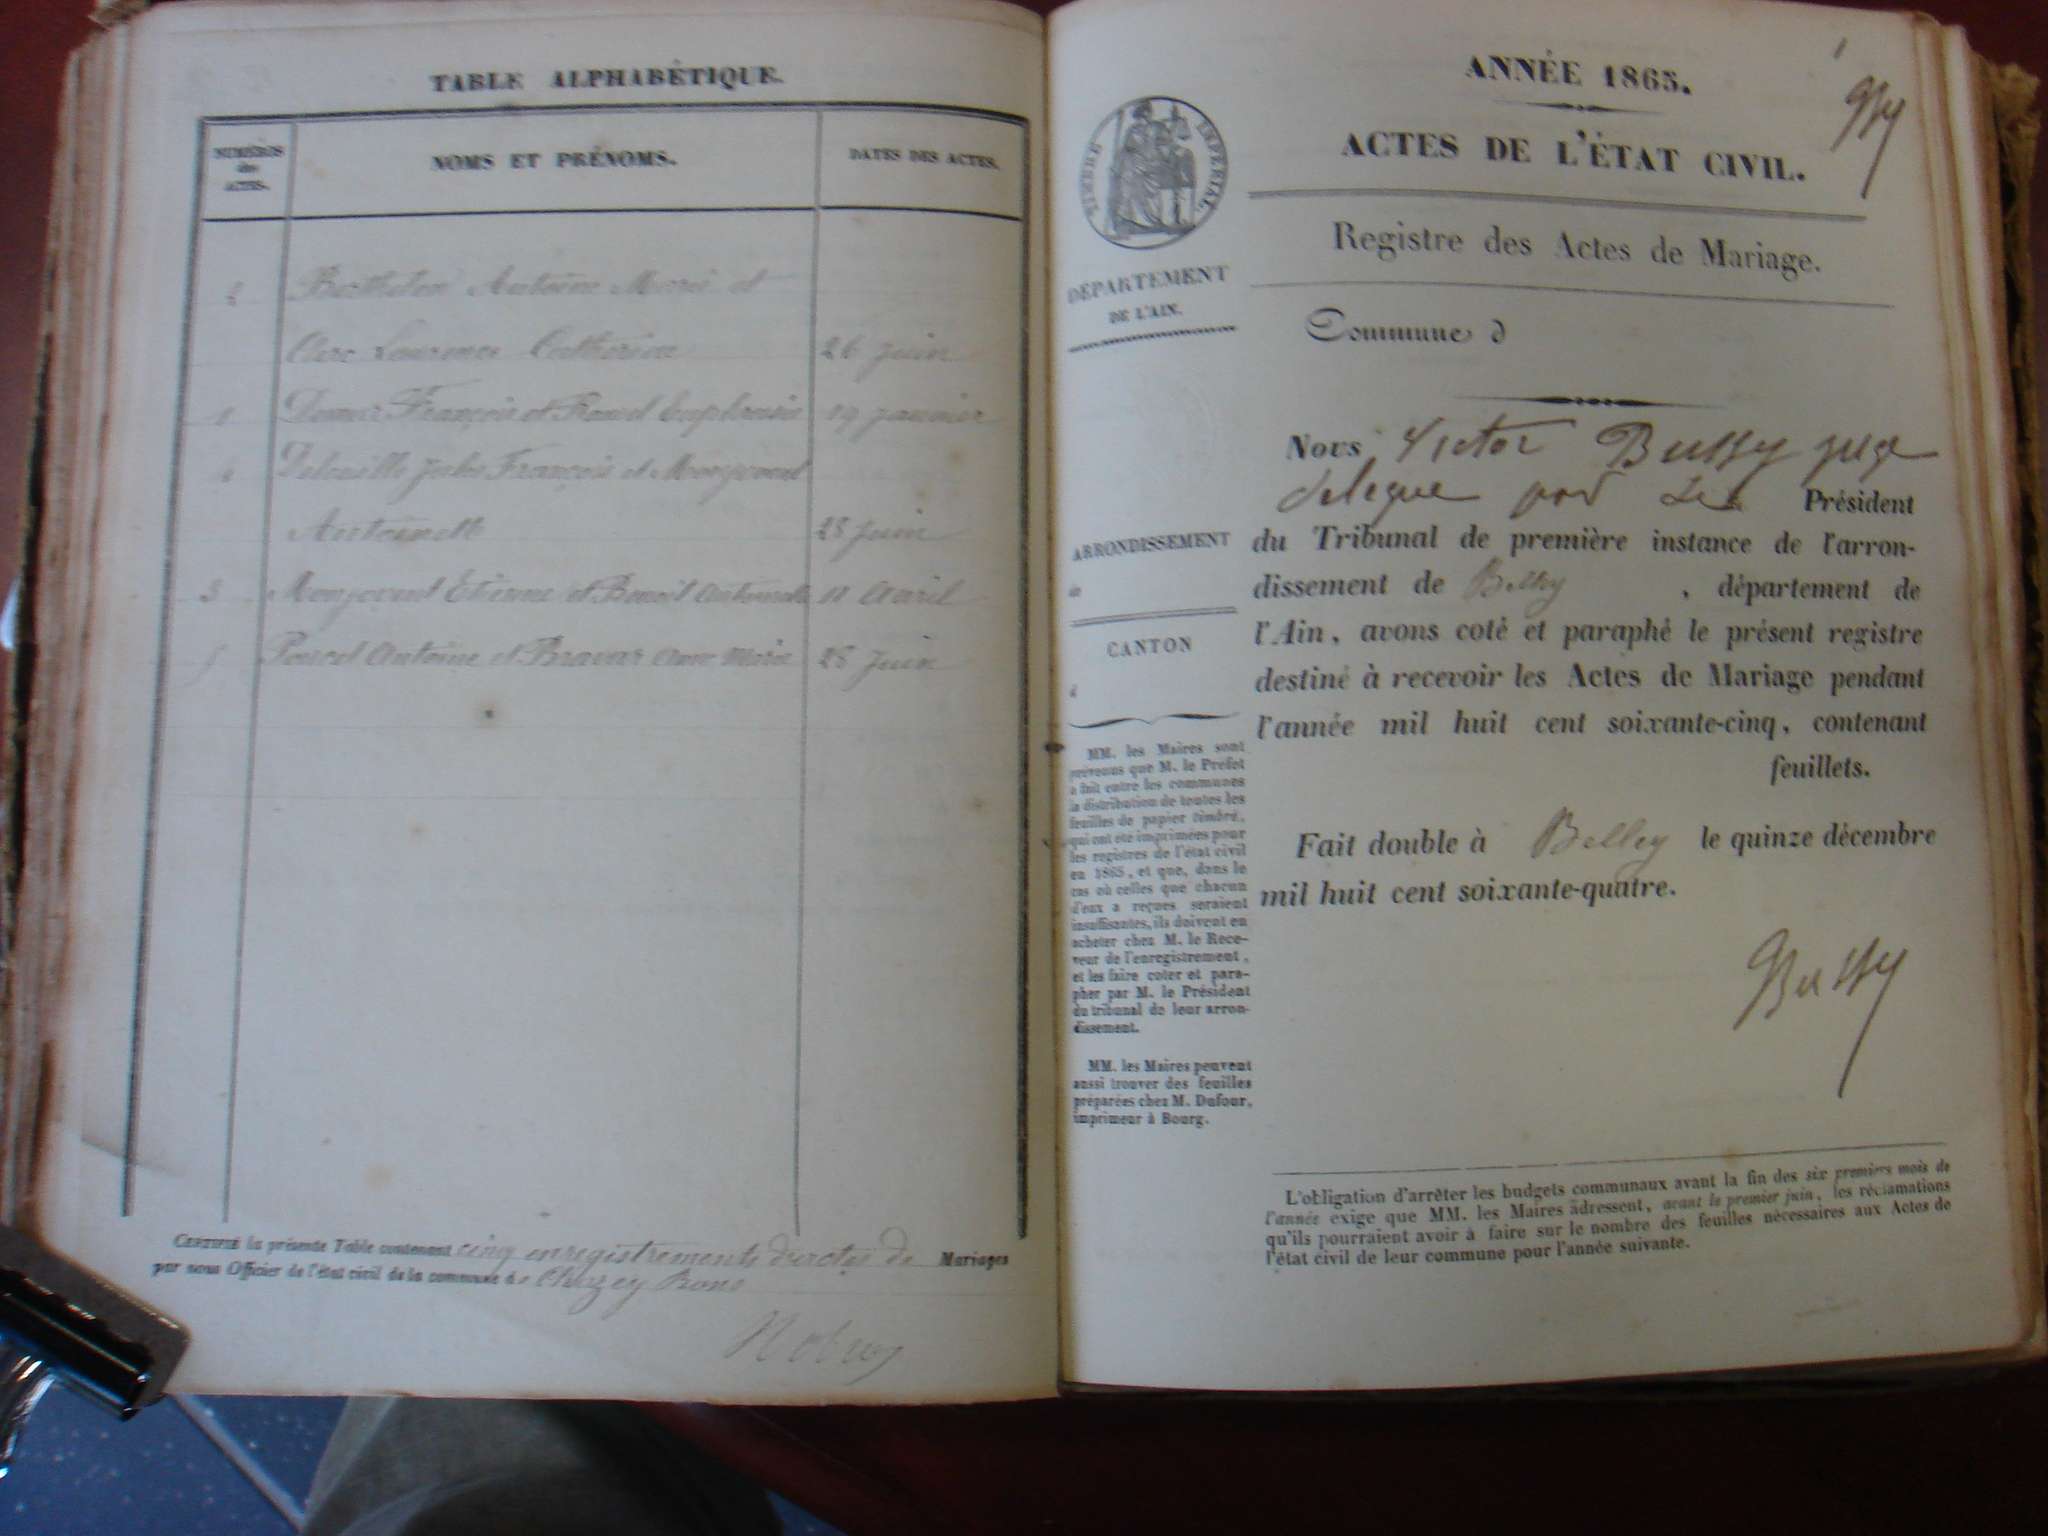 TABLE ALPHABÉTIQUE.
NUMÉROS des ACTES.
NOMS ET PRÉNOMS.
DATES DES ACTES.
2 Berthelon Antoine Marie et
Clerc Laurence Catherine 26 Juin
1 François et Euphrasie 19 janvier
4 Jules François et Monjovent
Antoinette 28 Juin
3 Monjovent Etienne et Benoit Antoinette 11 Avril
5 Poncet Antoine et Bravar Anne Marie 28 Juin
CERTIFIÉ la présente Table contenant cinq enregistrements d'actes de Mariages
par nous Officier de l'état civil de la commune de Chazey Bons
ANNÉE 1865.
ACTES DE L'ÉTAT CIVIL.
TIMBRE IMPÉRIAL
Registre des Actes de Mariage.
DÉPARTEMENT
DE L'AIN.
Commune d
Nous Victor Bussy juge
delegue par Le Président
du Tribunal de première instance de l'arron-
dissement de Belley , département de
l'Ain, avons coté et paraphé le présent registre
destiné à recevoir les Actes de Mariage pendant
l'année mil huit cent soixante-cinq, contenant
feuillets.
Fait double à Belley le quinze décembre
mil huit cent soixante-quatre.
Bussy
ARRONDISSEMENT
CANTON
MM. les Maires sont
prévenus que M. le Préfet
a fait entre les communes
la distribution de toutes les
feuilles de papier timbré,
qui ont été imprimées pour
les registres de l'état civil
en 1865, et que, dans le
cas où celles que chacun
d'eux a reçues seraient
insuffisantes, ils doivent en
acheter chez M. le Rece-
veur de l'enregistrement,
et les faire coter et para-
pher par M. le Président
du tribunal de leur arron-
dissement.
MM. les Maires peuvent
aussi trouver des feuilles
préparées chez M. Dufour,
imprimeur à Bourg.
L'obligation d'arrêter les budgets communaux avant la fin des six premiers mois de
l'année exige que MM. les Maires adressent, avant le premier juin, les réclamations
qu'ils pourraient avoir à faire sur le nombre des feuilles nécessaires aux Actes de
l'état civil de leur commune pour l'année suivante.